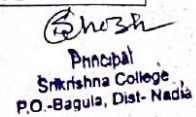 Ghosh
Principal
Srikrishna College
P.O.-Bagula, Dist- Nadia